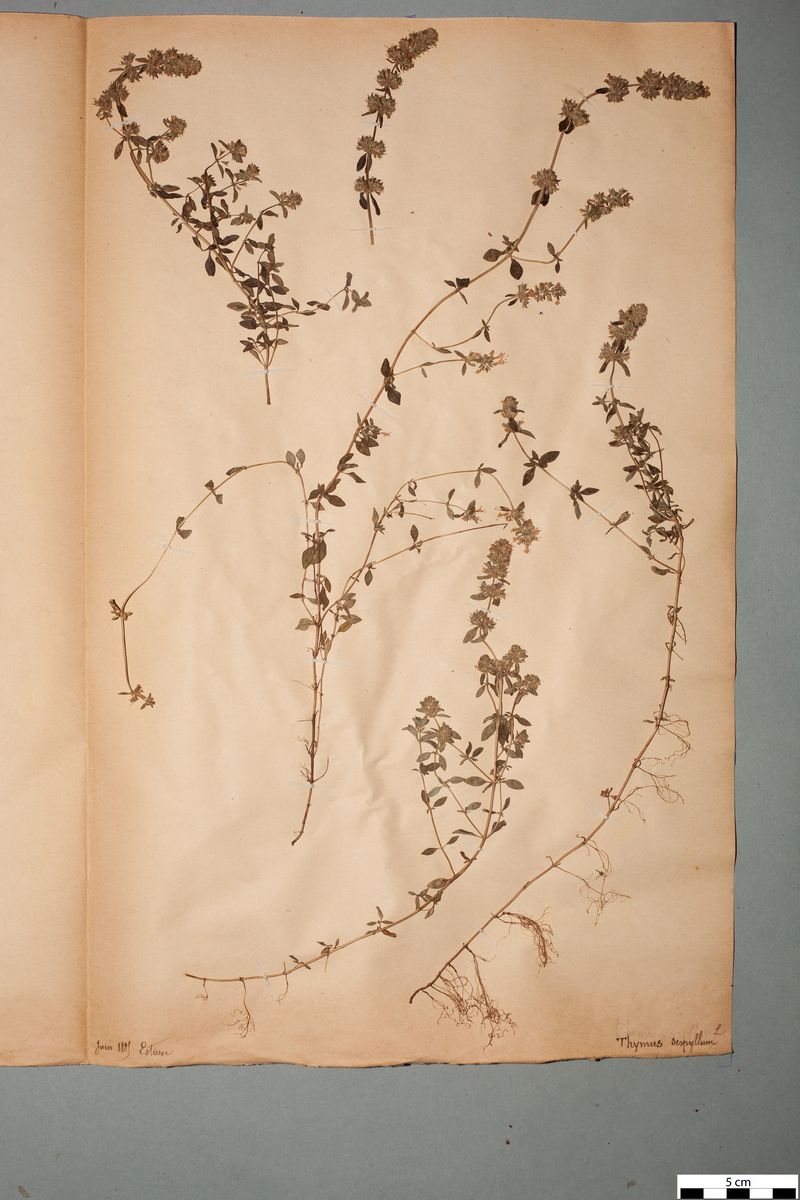 Juin 1887 Estivac
Thymus serpyllum L
5 cm